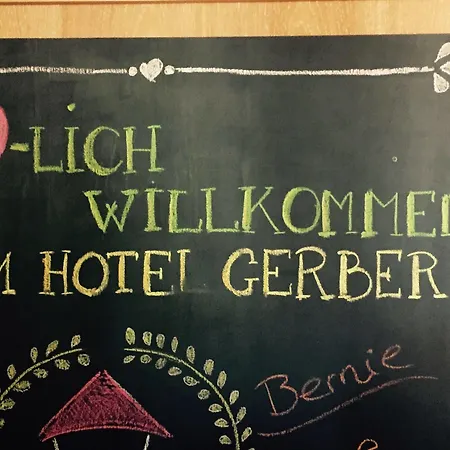 -LICH
WILLKOMMEN
M HOTEL GERBER
Bernie